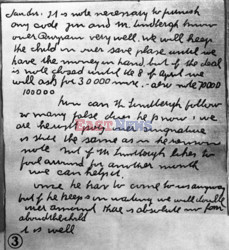 it is note necessary to furnish
any code. you and Mr. Lindbergh know
ouer Program very well. we will keep
the child in ouer save plase until we
have the money in hand but if the deal
is note closed until the 8 of April we
will ask for 30000 more. - also note 70000
100000
how can Mr Lindbergh follow
so many false he know
are the right our singnature
is still the same as in the ransom
note if Mr Lindbergh likes to
fool around for another month
we can help it.
once he has to come to us anyway
but if he keeps on waiting we will double
ouer amount there is absolute no fear
aboud the child
it is well
EAST NEWS
3